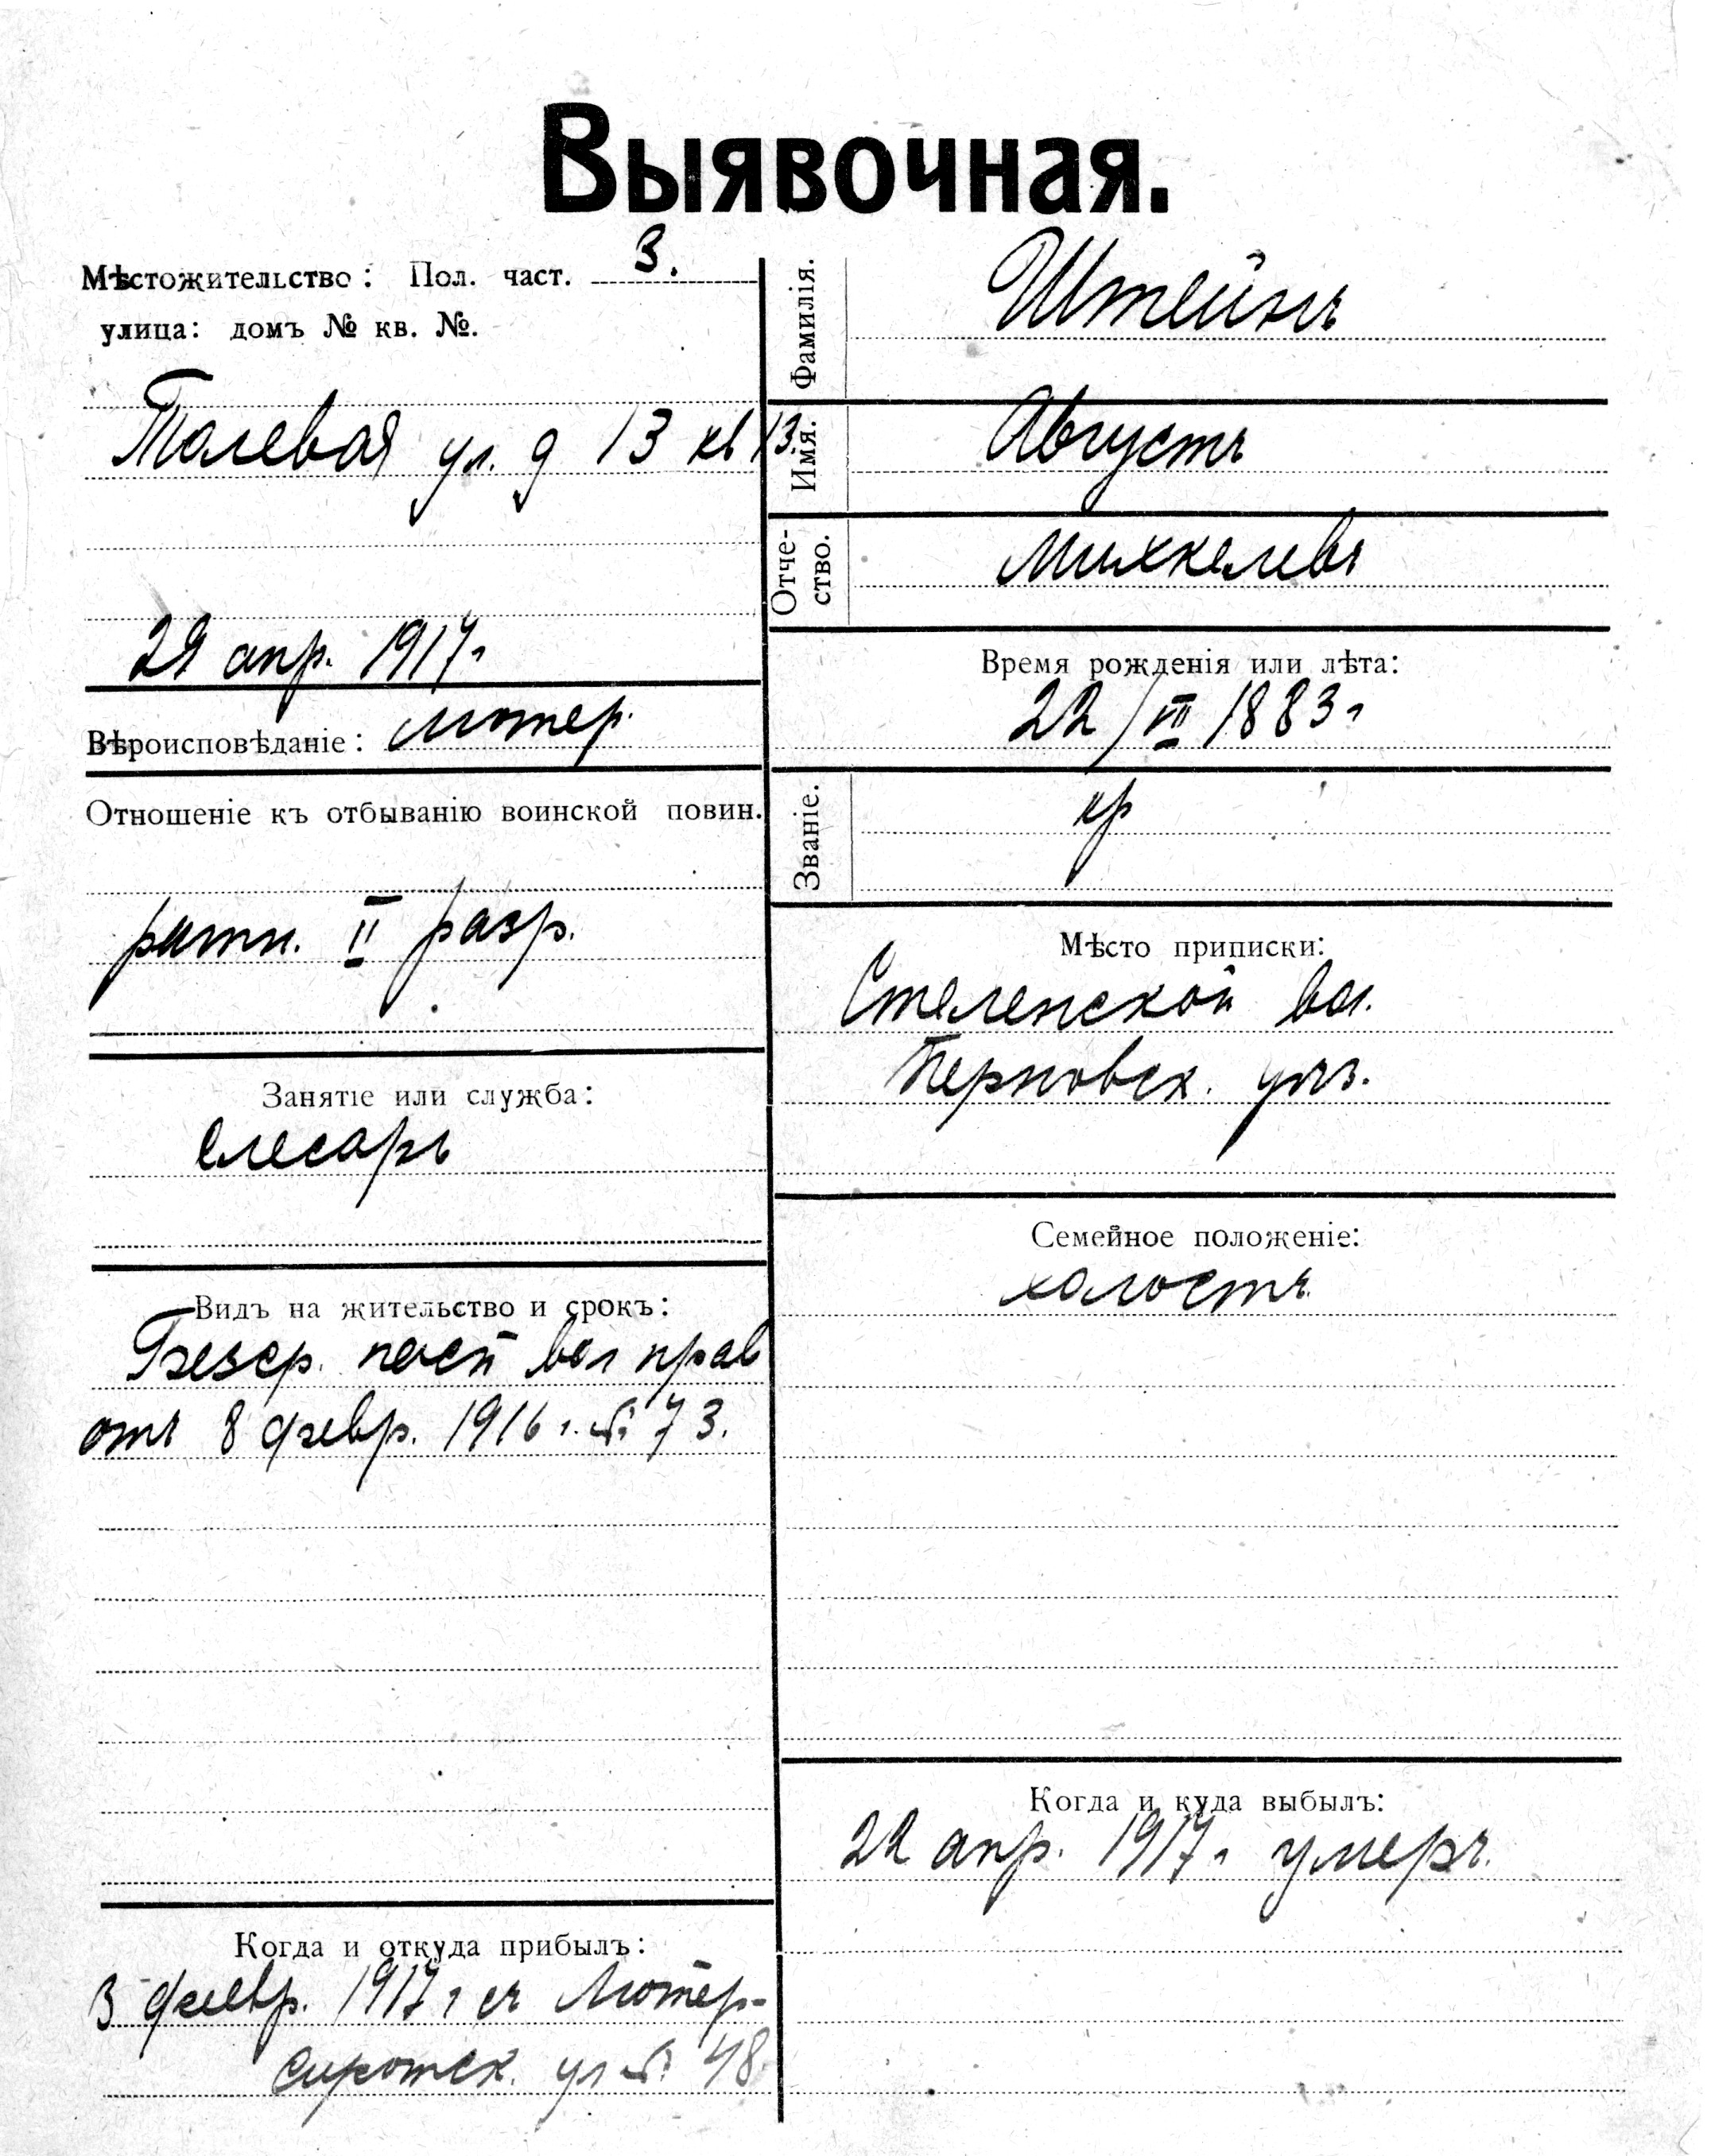 Выявочная.
Мѣстожительство: Пол. част. 3.
улица: домъ № кв. №.
Полевая ул. д 13 кв 13.
29 апр. 1917г
Вѣроисповѣданіе: лютер.
Отношеніе къ отбыванію воинской повин.
ратн. II разр.
Занятіе или служба:
слесарь
Видъ на жительство и срокъ:
Безср. песп вол прав
отъ 8 февр. 1916 г. № 73.
Когда и откуда прибылъ:
3 февр. 1917 г съ Лютер-
сиротск. ул № 48
Фамилія. Штейнъ
Имя. Августъ
Отче-
ство. Михкелевъ
Время рожденія или лѣта:
22/VII 1883 г
Званіе. кр
Мѣсто приписки:
Стеленской вол.
Перновск. уѣз.
Семейное положеніе:
холостъ.
Когда и куда выбылъ:
22 апр. 1917 г умеръ.